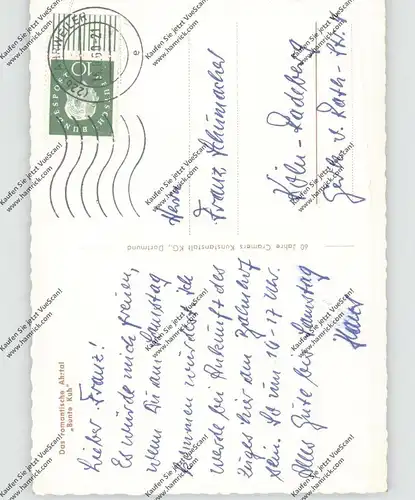 Das romantische Ahrtal
"Bunte Kuh"
Lieber Franz!
Es würde mich freuen,
wenn Du am Samstag
kommen würdest. Ich
werde bei Ankunft des
Zuges hier am Bahnhof
sein. So um 16-17 Uhr.
Alles Gute bis Samstag
Hans
60 Jahre Cramers Kunstanstalt KG., Dortmund
Herrn
Franz Schumacher
Köln-Raderberg
Gerh. v. Rath-Str.
DEUTSCHE BUNDESPOST
10
Kaufen Sie jetzt VueScan!
www.hamrick.com